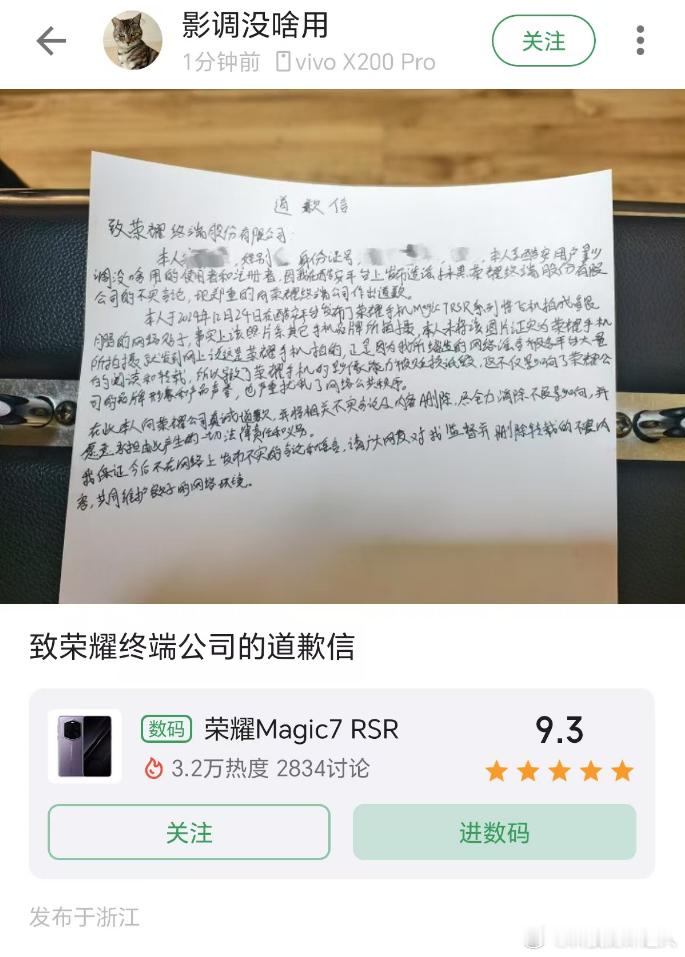 影调没啥用
1分钟前 vivo X200 Pro
关注
道歉信
致荣耀终端股份有限公司:
本人 性别 身份证号 , 本人是酷安用户影
调没啥用的使用者和注册者,因我在酷安平台上发布造谣抹黑荣耀终端股份有限
公司的不实言论,现郑重的向荣耀终端公司作出道歉。
本人于2024年12月24日在酷安平台发布了荣耀手机Magic7RSR系列将飞机拍成
的网络帖子,事实上该照片系其它手机品牌所拍摄,本人未将该图片证实为荣耀手机
所拍摄就发到网上说这是荣耀手机拍的,正是因为我所编造的网络谣言被各平台大量
的阅读和转载,所以导致了荣耀手机的影像能力被贬损诋毁,这不仅影响了荣耀公
司的品牌形象和产品声誉,也严重扰乱了网络公共秩序。
在此本人向荣耀公司真诚道歉,并将相关不实言论及内容删除,尽全力消除不良影响,并
愿意承担由此产生的一切法律责任和义务。
我保证今后不在网络上发布不实的言论和谣言,请广大网友对我监督并删除转载的不实内
容,共同维护良好的网络环境。
致荣耀终端公司的道歉信
数码 荣耀Magic7 RSR
3.2万热度 2834讨论
9.3
关注
进数码
发布于浙江